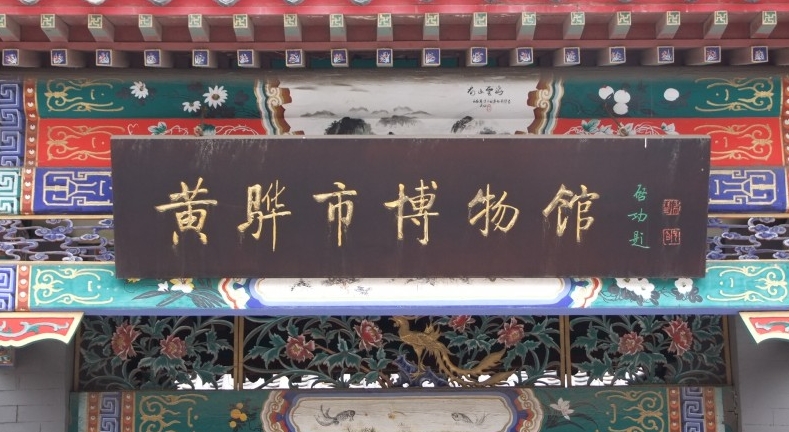 黄骅市博物馆
启功题